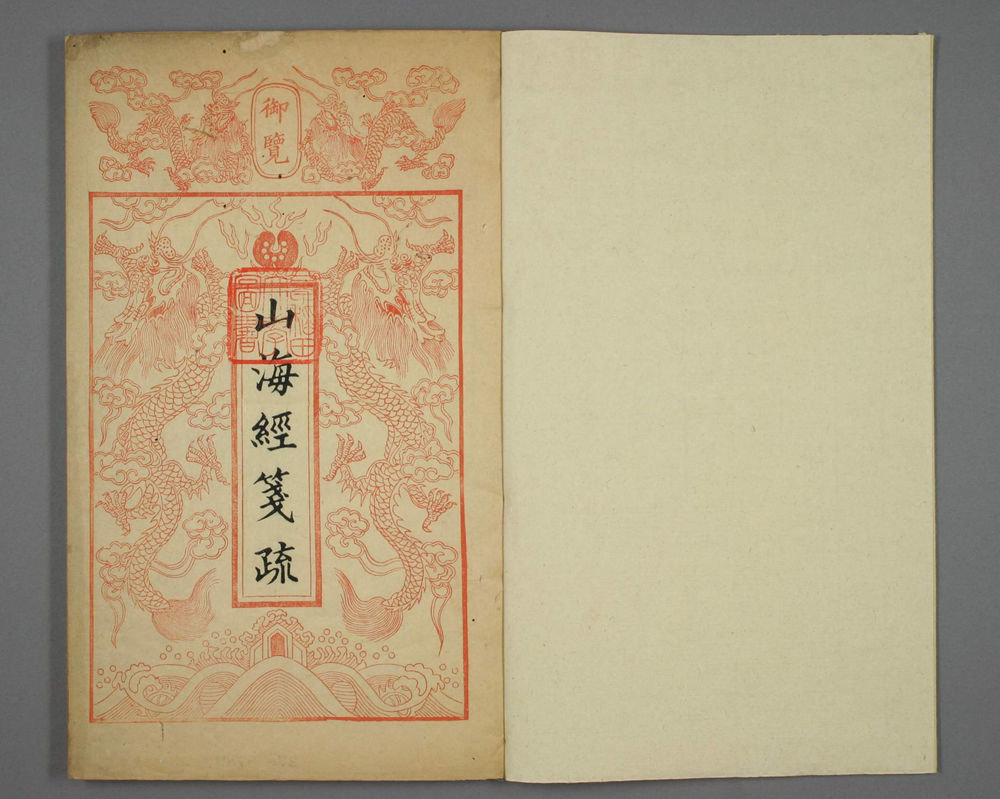 御覽
山海經箋疏